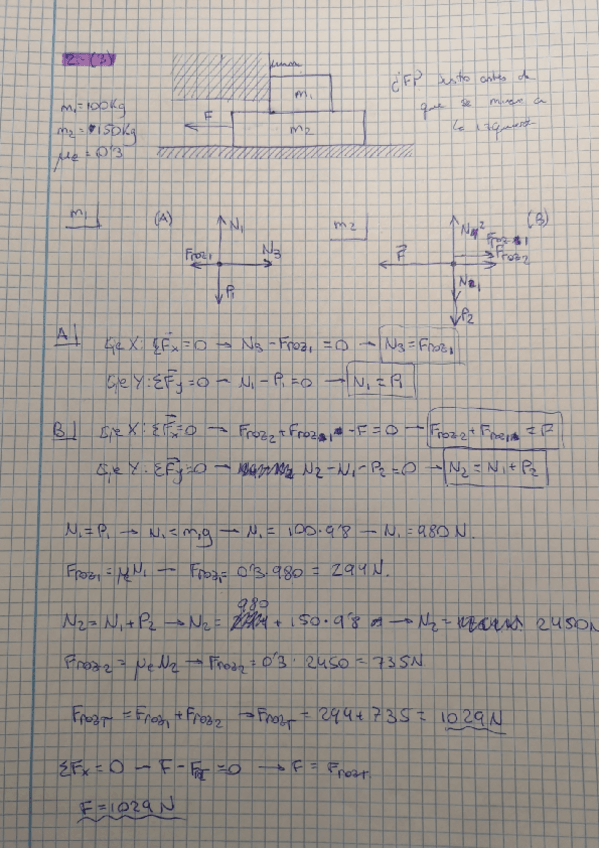 2-(3)
m₁=100Kg
m₂=150Kg
μe=0'3
m₁
F
m₂
¿F? justo antes de
que se mueva a
la izquierda
m₁ (A) N₁ Froz₁ N₃ P₁
m₂ (B) N₂ F Froz1 Froz2 N₁ P₂
A) Eje X: ΣFx=0 → N₃-Froz₁=0 → N₃=Froz₁
Eje Y: ΣFy=0 → N₁-P₁=0 → N₁=P₁
B) Eje X: ΣFx=0 → Froz₂+Froz₁-F=0 → Froz₂+Froz₁=F
Eje Y: ΣFy=0 → N₂-N₁-P₂=0 → N₂=N₁+P₂
N₁=P₁ → N₁=m₁g → N₁=100·9'8 → N₁=980N.
Froz₁=μeN₁ → Froz₁=0'3·980=294N.
N₂=N₁+P₂ → N₂=980+150·9'8 → N₂=2450N
Froz₂=μeN₂ → Froz₂=0'3·2450=735N
FrozT=Froz₁+Froz₂ → FrozT=294+735=1029N
ΣFx=0 → F-FrT=0 → F=FrozT
F=1029N